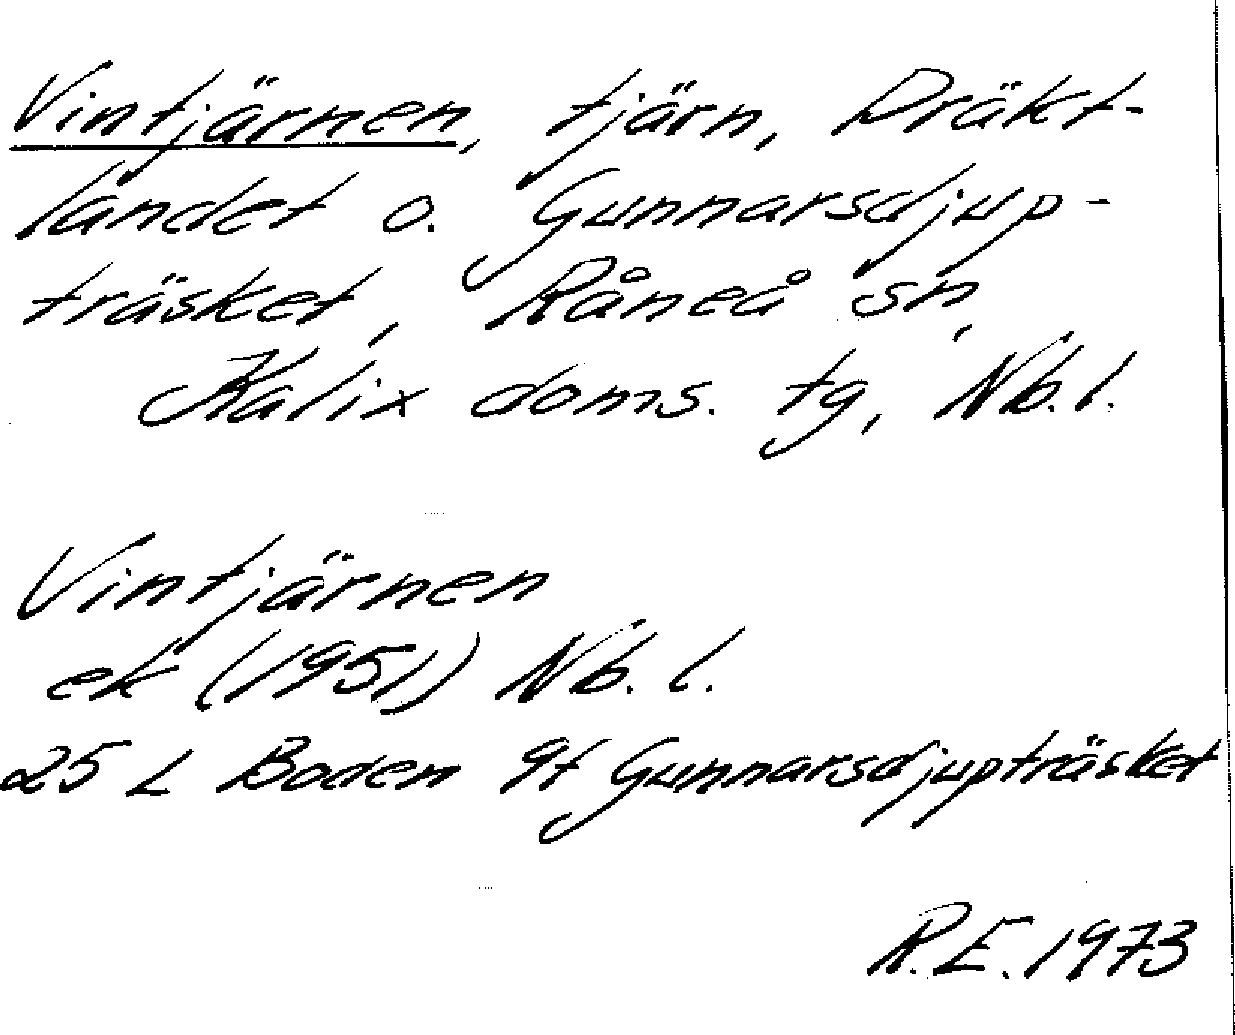 Vintjärnen, tjärn, Dräkt-
landet o. Gunnarsdjup-
träsket, Råneå sn,
Kalix doms. tg, Nb.l.
Vintjärnen
ek (1951) Nb. l.
25 L Boden 9f Gunnarsdjupträsket
R.E. 1973